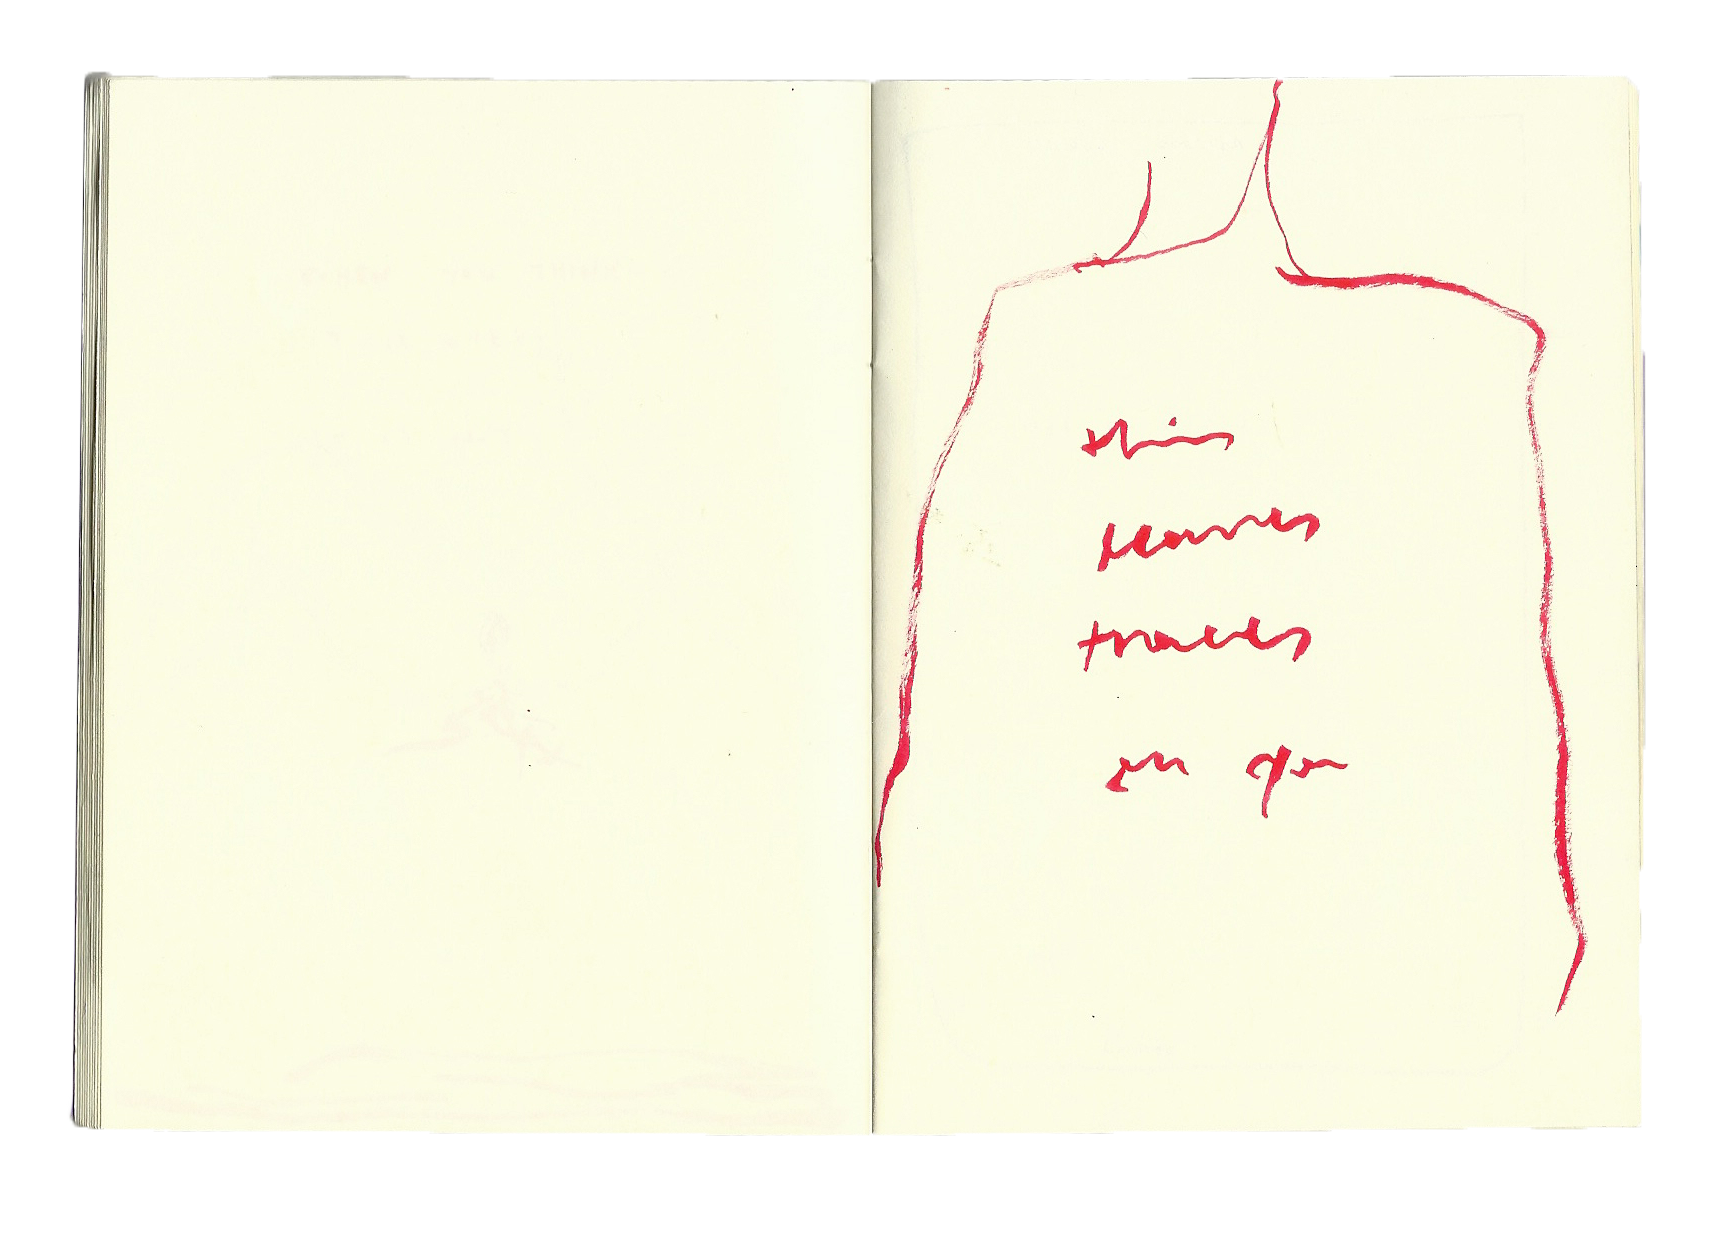 this
leaves
traces
on you